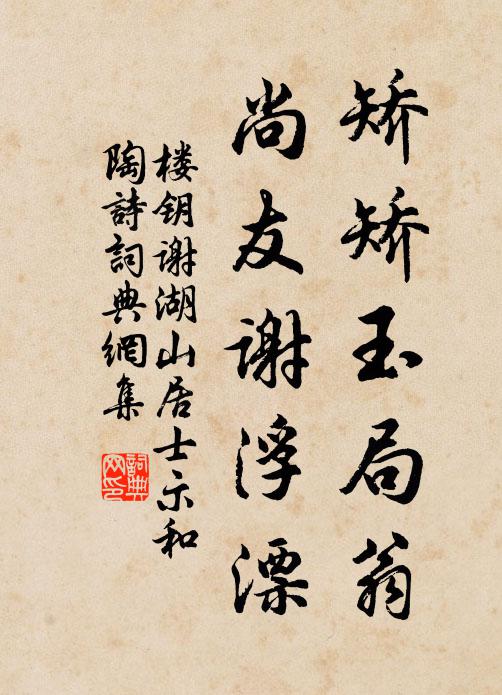 矫矫玉局翁
尚友谢浮漂
楼钥谢湖山居士示和
陶詩詞典網集
詞典网印